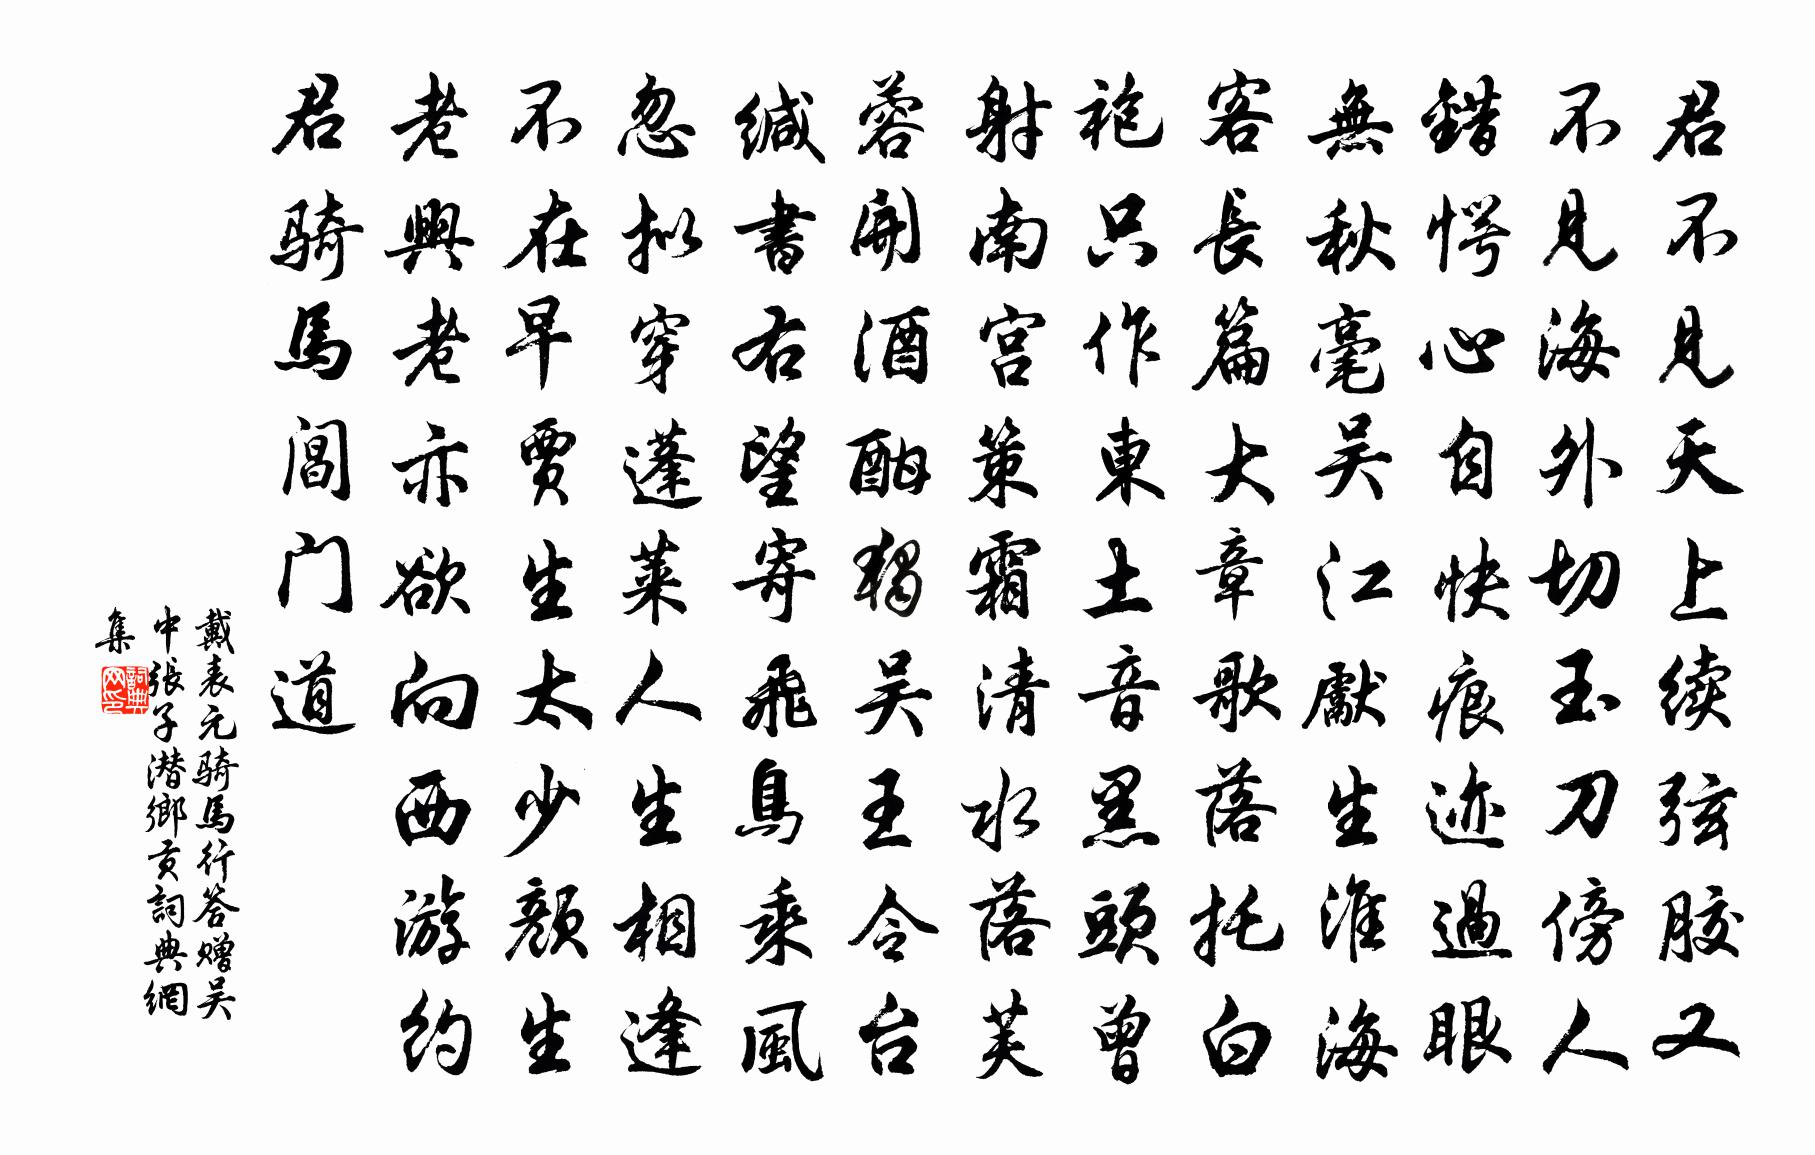 君不見天上续弦胶又
不見海外切玉刀傍人
錯愕心自快痕迹過眼
無秋毫吴江獻生淮海
客長篇大章歌落托白
袍只作東土音黑頭曾
射南宫策霜清水落芙
蓉開酒酣猶吴王令台
缄書右望寄飛鳥乘風
忽拟穿蓬莱人生相逢
不在早贾生太少颜生
老興老亦欲向西游约
君骑馬閶门道
戴表元骑馬行答赠吴
中張子潜鄉贡詞典網
集
詞典网印